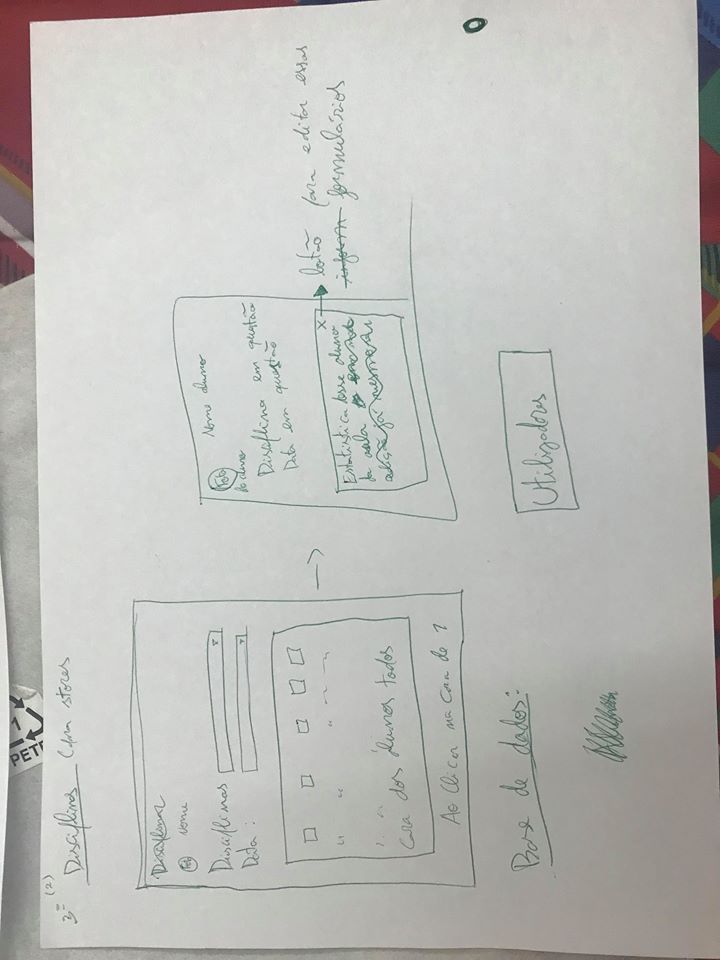 PET
1
3=
(2)
Disciplinas para stores
Disciplinas
Foto Nome
Disciplinas
Data :
Cara dos álunos todos
Ao clicar na cara de 1
Foto
Nome aluno
do aluno
Disciplina em questão
Data em questão
X
Estatística desse aluno
da aula
botão para editar essas
formulários
Base de dados:
Utilizadores